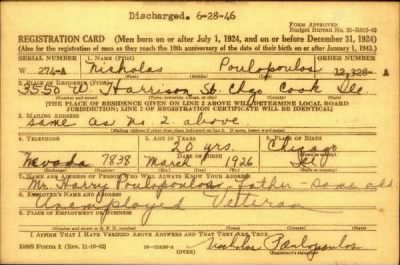 Discharged. 6-28-46
FORM APPROVED
REGISTRATION CARD (Men born on or after July 1, 1924, and on or before December 31, 1924)
(Also for the registration of men as they reach the 18th anniversary of the date of their birth on or after January 1, 1943.)
SERIAL NUMBER 1. NAME (Print) ORDER NUMBER
W 274-A Nicholas Poulopoulos 12,328-A
2. PLACE OF RESIDENCE (Print)
3550 W Harrison St. Chgo Cook Ill.
[THE PLACE OF RESIDENCE GIVEN ON LINE 2 ABOVE WILL DETERMINE LOCAL BOARD
JURISDICTION; LINE 2 OF REGISTRATION CERTIFICATE WILL BE IDENTICAL]
3. MAILING ADDRESS
same as no. 2 above
4. TELEPHONE 5. AGE IN YEARS 6. PLACE OF BIRTH
20 yrs. Chicago
Nevada 7838 March 1926 Ill
7. NAME AND ADDRESS OF PERSON WHO WILL ALWAYS KNOW YOUR ADDRESS
Mr. Harry Poulopoulos, father - same add
8. EMPLOYER'S NAME AND ADDRESS
Unemployed Veteran
9. PLACE OF EMPLOYMENT OR BUSINESS
I AFFIRM THAT I HAVE VERIFIED ABOVE ANSWERS AND THAT THEY ARE TRUE.
DSS Form 1 (OVER) Nicholas Poulopoulos